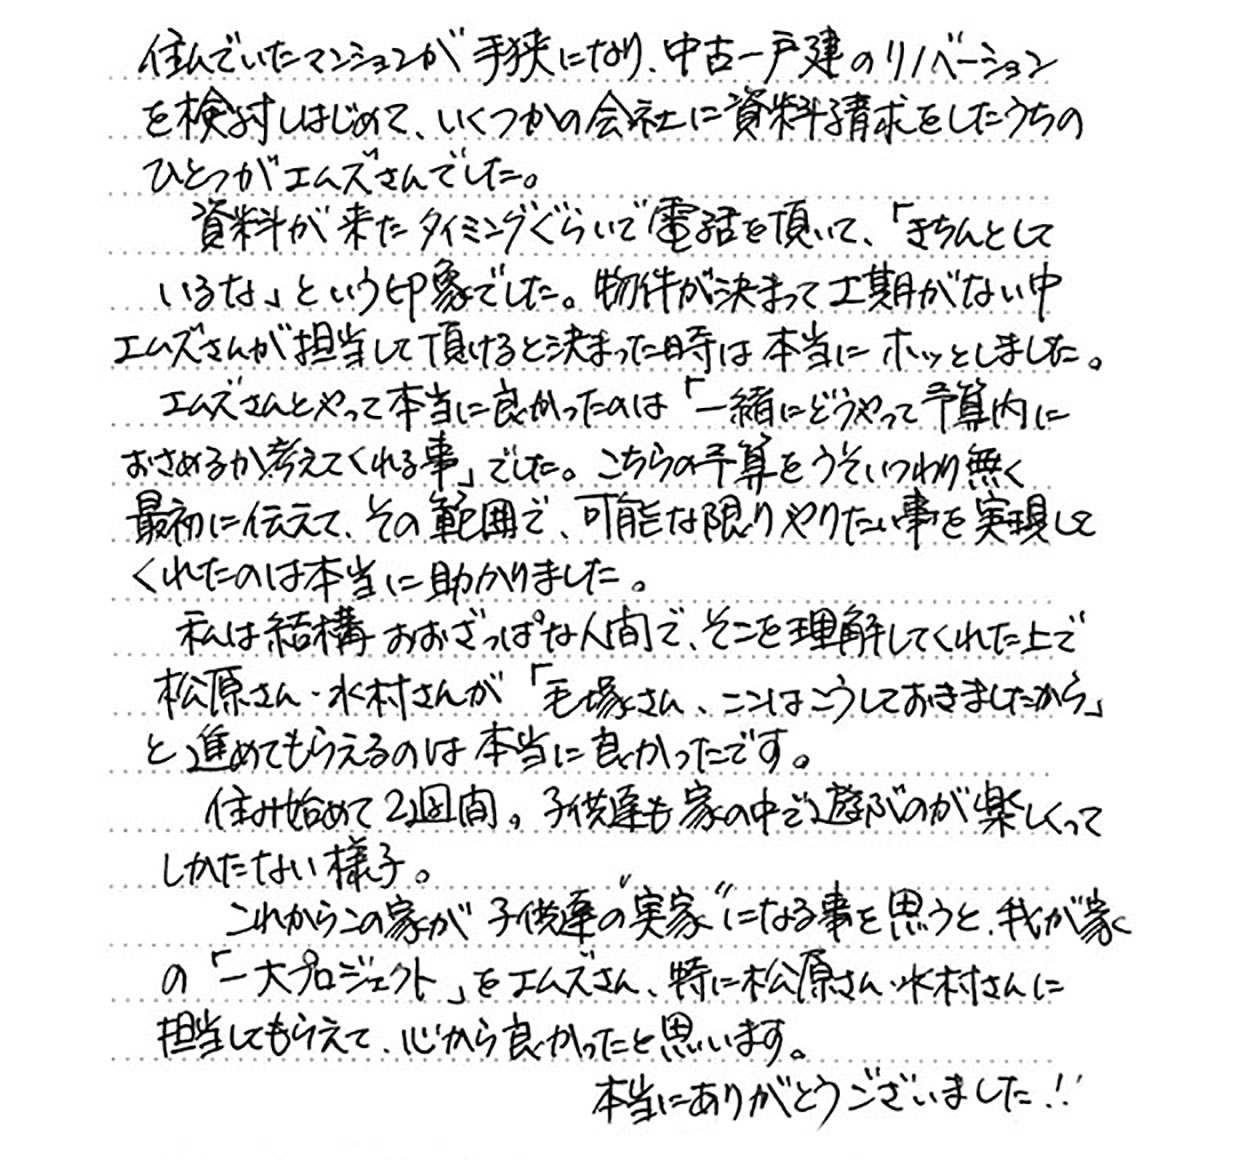 住んでいたマンションが手狭になり、中古一戸建のリノベーション
を検討しはじめて、いくつかの会社に資料請求をしたうちの
ひとつがエムズさんでした。
資料が来たタイミングぐらいで電話を頂いて、「きちんとして
いるな」という印象でした。物件が決まって工期がない中
エムズさんが担当して頂けると決まった時は本当にホッとしました。
エムズさんとやって本当に良かったのは「一緒にどうやって予算内に
おさめるか考えてくれる事」でした。こちらの予算をうそいつわり無く
最初に伝えて、その範囲で、可能な限りやりたい事を実現して
くれたのは本当に助かりました。
私は結構おおざっぱな人間で、そこを理解してくれた上で
松原さん・水村さんが「毛塚さん、ここはこうしておきましたから」
と進めてもらえるのは本当に良かったです。
住み始めて2週間。子供達も家の中で遊ぶのが楽しくって
しかたない様子。
これからこの家が子供達の“実家”になる事を思うと、我が家
の「一大プロジェクト」をエムズさん、特に松原さん・水村さんに
担当してもらえて、心から良かったと思います。
本当にありがとうございました!!